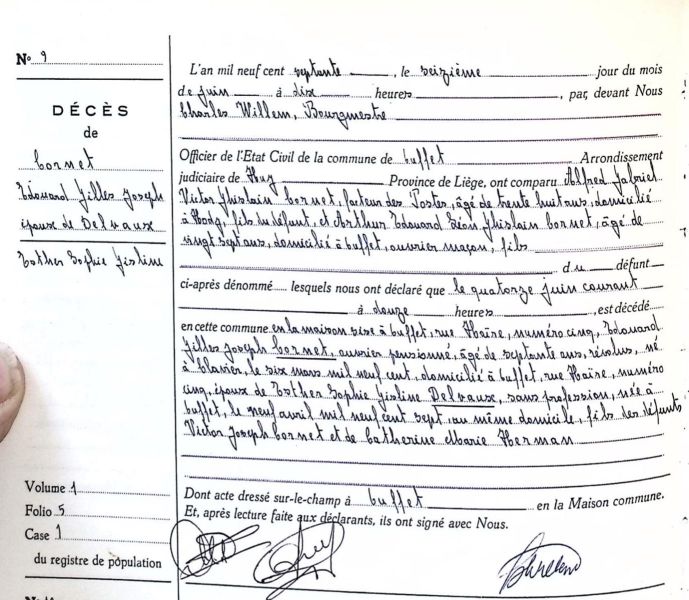 N° 9
DÉCÈS
de
Cornet
Edouard Gilles Joseph
époux de Delvaux
Esther Sophie Gisline
L'an mil neuf cent septante , le seizième jour du mois
de juin à dix heures , par, devant Nous
Charles Willem, Bourgmestre
Officier de l'Etat Civil de la commune de Buffet Arrondissement
judiciaire de Huy Province de Liège, ont comparu Alfred Gabriel
Victor Ghislain Cornet, facteur des Postes, âgé de trente huit ans, domicilié
à Hody, fils du défunt, et Arthur Edouard Léon Ghislain Cornet, âgé de
vingt sept ans, domicilié à Buffet, ouvrier maçon, fils
du défunt
ci-après dénommé lesquels nous ont déclaré que le quatorze juin courant
à douze heures , est décédé
en cette commune en la maison sise à Buffet, rue Haïre, numéro cinq, Edouard
Gilles Joseph Cornet, ouvrier pensionné, âgé de septante ans, révolus, né
à Clavier, le six mars mil neuf cent, domicilié à Buffet, rue Haïre, numéro
cinq, époux de Esther Sophie Gisline Delvaux, sans profession, née à
Buffet, le neuf avril mil neuf cent sept, au même domicile, fils des défunts
Victor Joseph Cornet et de Catherine Marie Herman
Dont acte dressé sur-le-champ à Buffet en la Maison commune.
Et, après lecture faite aux déclarants, ils ont signé avec Nous.
Volume 1
Folio 5
Case 1
du registre de population